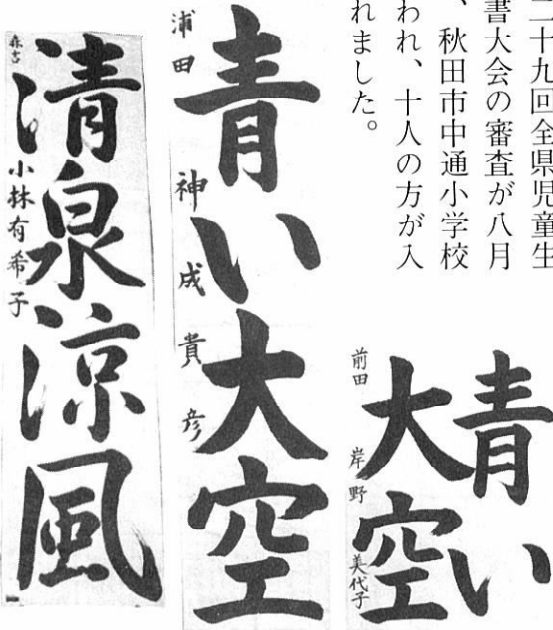 二十九回全県児童生
書大会の審査が八月
、秋田市中通小学校
われ、十人の方が入
れました。
青い
大空
前田 岸野 美代子
青い大空
浦田 神成貴彦
清泉涼風
森吉 小林有希子